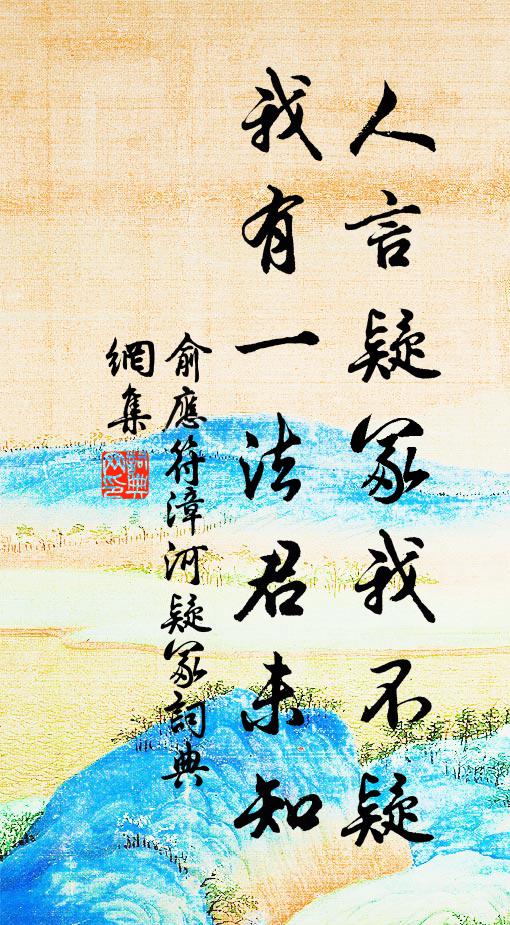 人言疑冢我不疑
我有一法君未知
俞應符漳河疑冢詞典
網集